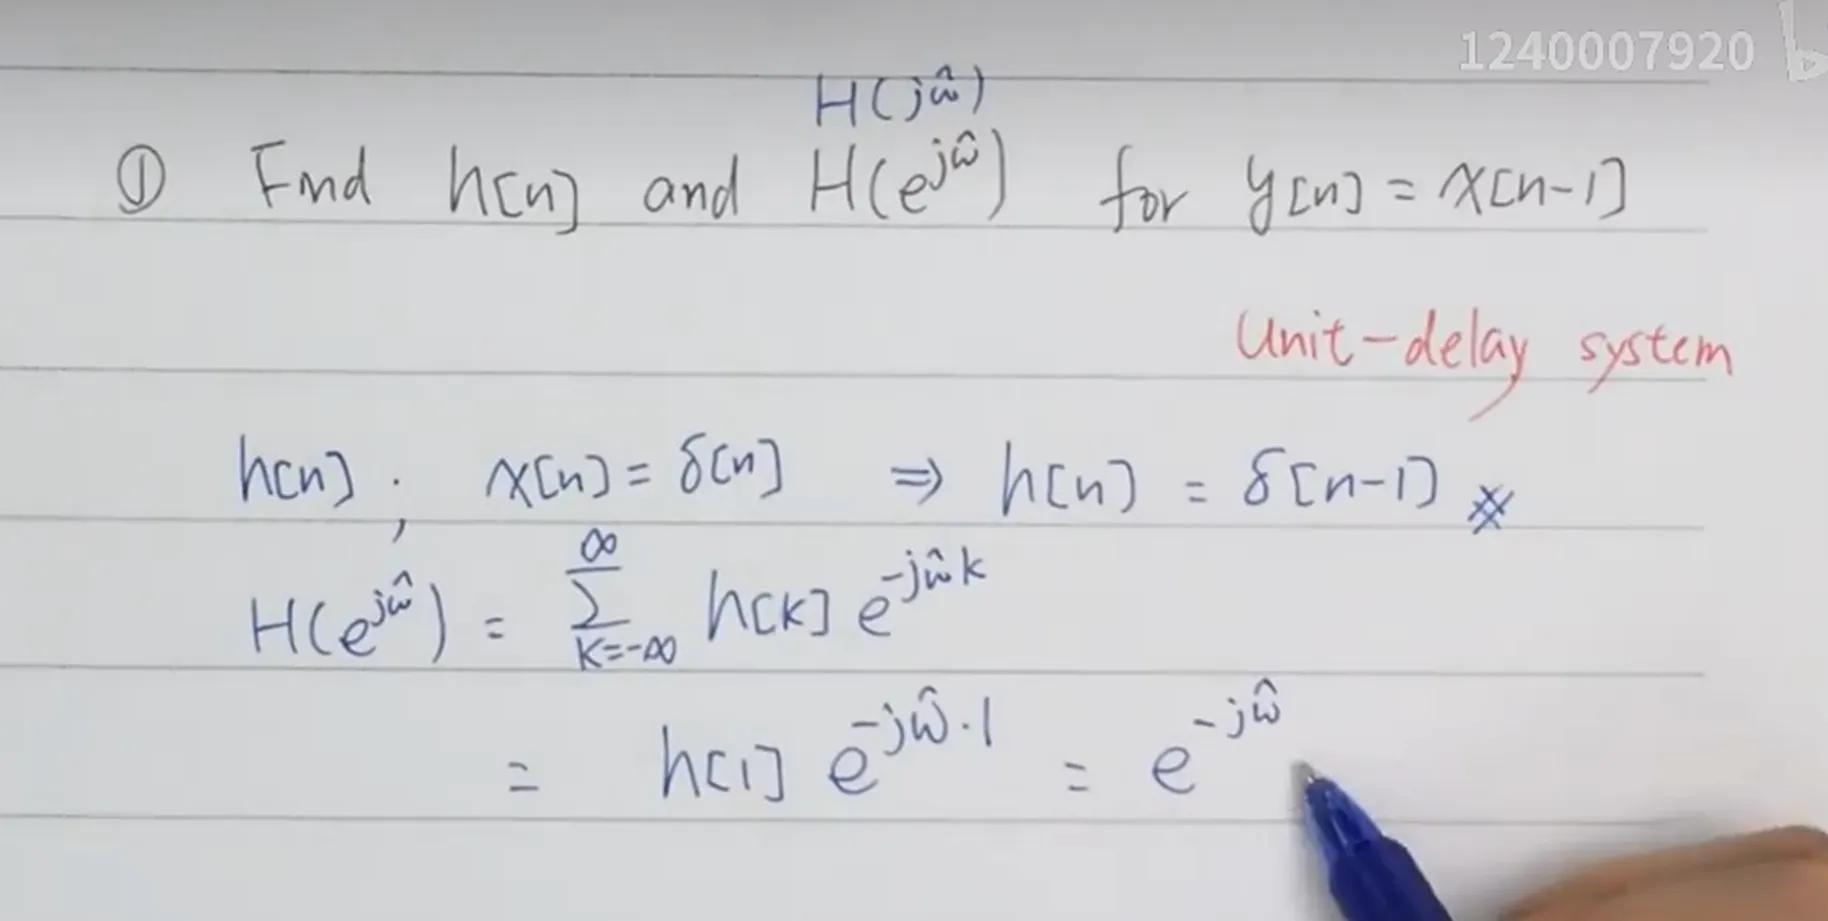 1240007920
H(jω̂)
① Find h[n] and H(e^{jω̂}) for y[n] = x[n-1]
Unit-delay system
h[n] ; x[n] = δ[n] ⇒ h[n] = δ[n-1] ※
H(e^{jω̂}) = ∑_{k=-∞}^{∞} h[k] e^{-jω̂k}
= h[1] e^{-jω̂·1} = e^{-jω̂}